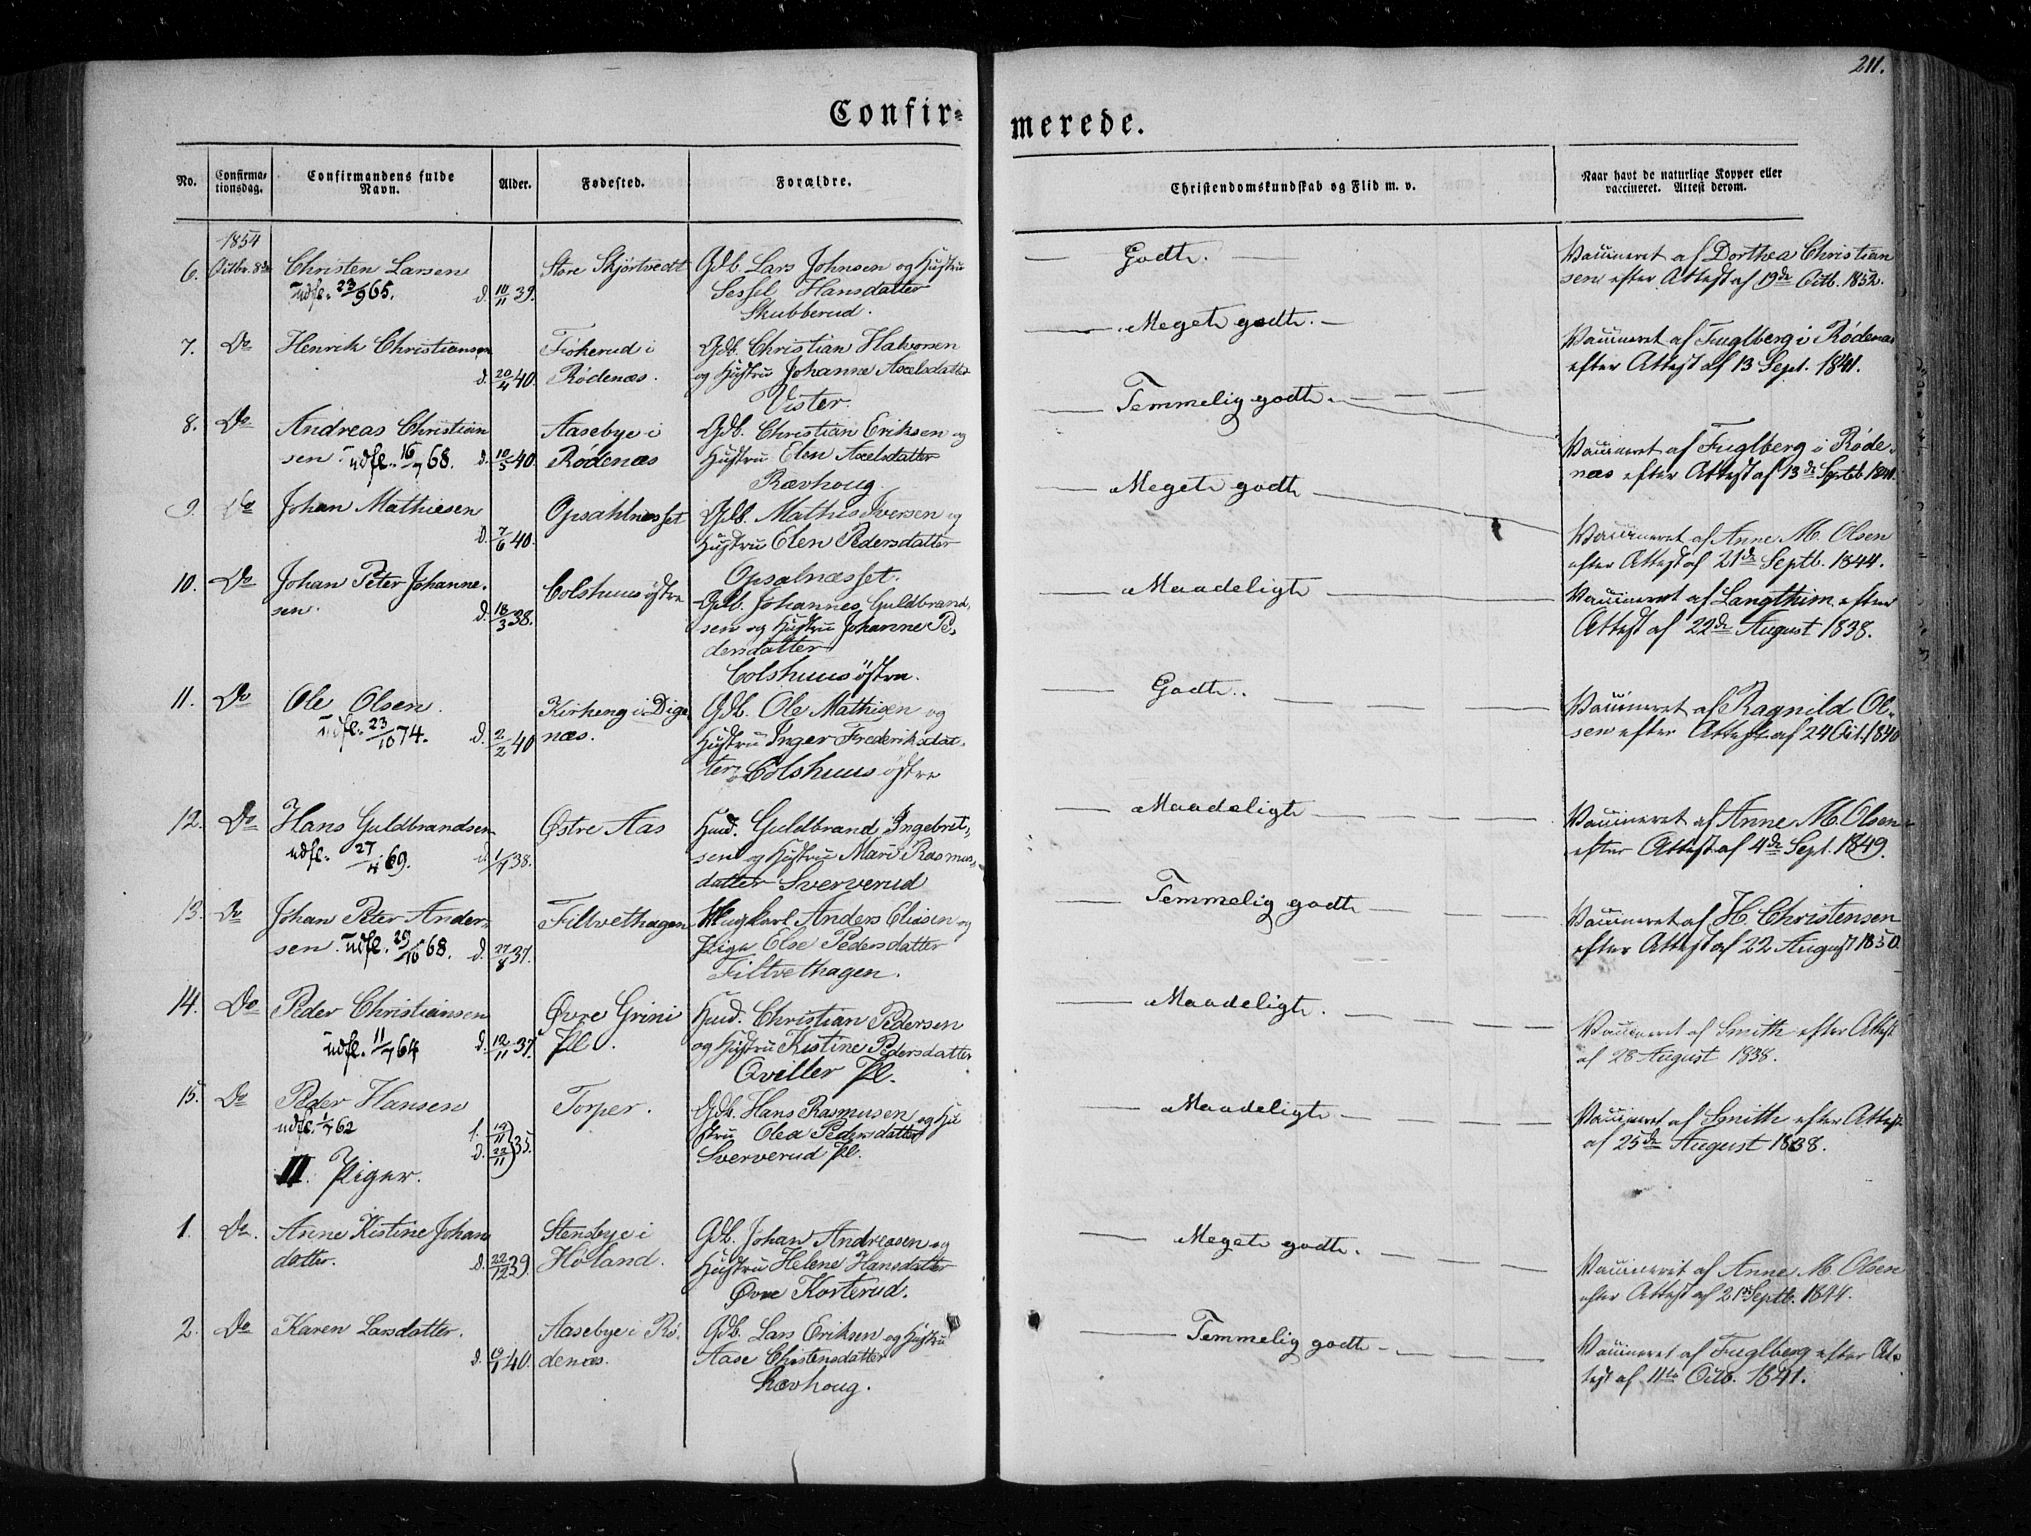 211.
Confir=
merede.
No.
Confirma-
tionsdag.
Confirmandens fulde
Navn.
Alder.
Fødested.
Forældre.
Christendomskundskab og Flid m. v.
Naar havt de naturlige Kopper eller
vaccineret. Attest derom.
1854
6. Octbr. 8de Christen Larsen Store Skjørtvedt Gdb. Lars Johnsen og Hustru
udfl. 23/9 65. d. 10/11 39. Sessel Hansdatter
Skubberud.
Godt.
Vaccineret af Dorthea Christian
sen efter Attest af 19de Octb. 1852.
7. Do Henrik Christiansen Gdb. Christian Halvorsen
d. 20/4 40. Rødenæs. og Hustru Johanne Axelsdatter
Vister.
Meget godt.
Vaccineret af Fuglberg i Rødenæs
efter Attest af 13 Sept. 1841.
8. Do Andreas Christian Aasebye i Gdb. Christian Eriksen og
sen. udfl. 16/7 68. d. 10/5 40. Rødenæs Hustru Elen Axelsdatter
Rævhoug.
Temmelig godt.
Vaccineret af Fuglberg i Røde-
næs efter Attest af 13de Septb. 1841.
9. Do Johan Mathiesen Opsahlnæsset Gdb. Mathis Iversen og
d. 7/6 40. Hustru Elen Pedersdatter
Opsalnæsset.
Meget godt
Vaccineret af Anne M. Olsen
efter Attest af 21de Septb. 1844.
10. Do Johan Peter Johanne- Colshuus østre Gdb. Johannes Guldbrand-
sen. d. 18/3 38. sen og Hustru Johanne Pe-
dersdatter
Colshuus østre.
Maadeligt
Vaccineret af Langthim efter
Attest af 22de August 1838.
11. Do Ole Olsen. Kirkeng i Dige Gdb. Ole Mathisen og
udfl. 23/10 74. d. 2/2 40 næs. Hustru Inger Frederiksdat-
ter, Colshuus østre
Godt.
Vaccineret af Ragnild Ol-
sen efter Attest af 24 Oct. 1840
12. Do Hans Guldbrandsen Østre Aas Huud. Guldbrand Ingebrit-
udfl. 27/4 69. d. 1/7 38. sen og Hustru Mari Rasmus-
datter Sververud
Maadeligt
Vaccineret af Anne M. Olsen
efter Attest af 4de Sept. 1849.
13. Do Johan Peter Ander- Filtvethagen Ungkarl Anders Eliasen og
sen. udfl. 29/10 68. d. 27/8 37. Pige Else Pedersdatter
Filtvethagen.
Temmelig godt
Vaccineret af H. Christensen
efter Attest af 22 August 1850.
14. Do Peder Christiansen Øvre Grini Huud. Christian Pedersen
udfl. 11/7 64 d. 12/11 37. Pl. og Hustru Kistine Pedersdatter
Qveller Pl.
Maadeligt.
Vaccineret af Smith efter Attest
af 28 August 1838.
15. Do Peder Hansen Torper. Gdb. Hans Rasmusen og Hu
udfl. 1/7 62 f. d. 22/11 35. stru Olea Pedersdatter
Sververud Pl.
Maadeligt
Vaccineret af Smith efter Attest
af 25de August 1838.
II. Piger.
1. Do. Anne Kistine Johan Stensbye i Gdb. Johan Andreasen og
datter. d. 22/12 39. Høland. Hustru Helene Hansdatter
Øvre Korterud.
Meget godt.
Vaccineret af Anne M. Olsen
efter Attest af 21de Septb. 1844.
2. Do Karen Larsdatter. Aasebye i Rø- Gdb. Lars Eriksen og Hustru
d. 40. denæs. Aase Christensdatter
Rævhoug.
Temmelig godt
Vaccineret af Fuglberg efter At-
test af 11te Octb. 1841.